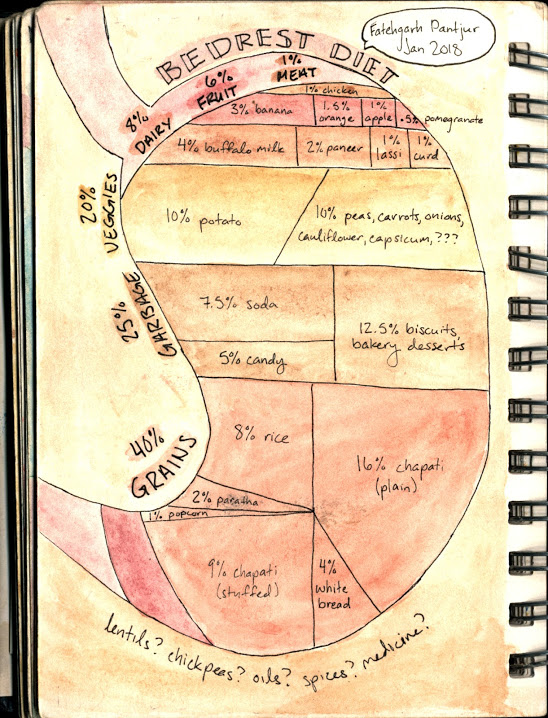 BEDREST DIET
Fatehgarh Pantjur
Jan 2018
1%
MEAT
1% chicken
6%
FRUIT
3% banana
1.5%
orange
1%
apple
.5% pomegranate
8%
DAIRY
4% buffalo milk
2% paneer
1%
lassi
1%
curd
20%
VEGGIES
10% potato
10% peas, carrots, onions,
cauliflower, capsicum, ???
25%
GARBAGE
7.5% soda
5% candy
12.5% biscuits,
bakery desserts
40%
GRAINS
8% rice
16% chapati
(plain)
2% paratha
1% popcorn
9% chapati
(stuffed)
4%
white
bread
lentils? chickpeas? oils? spices? medicine?